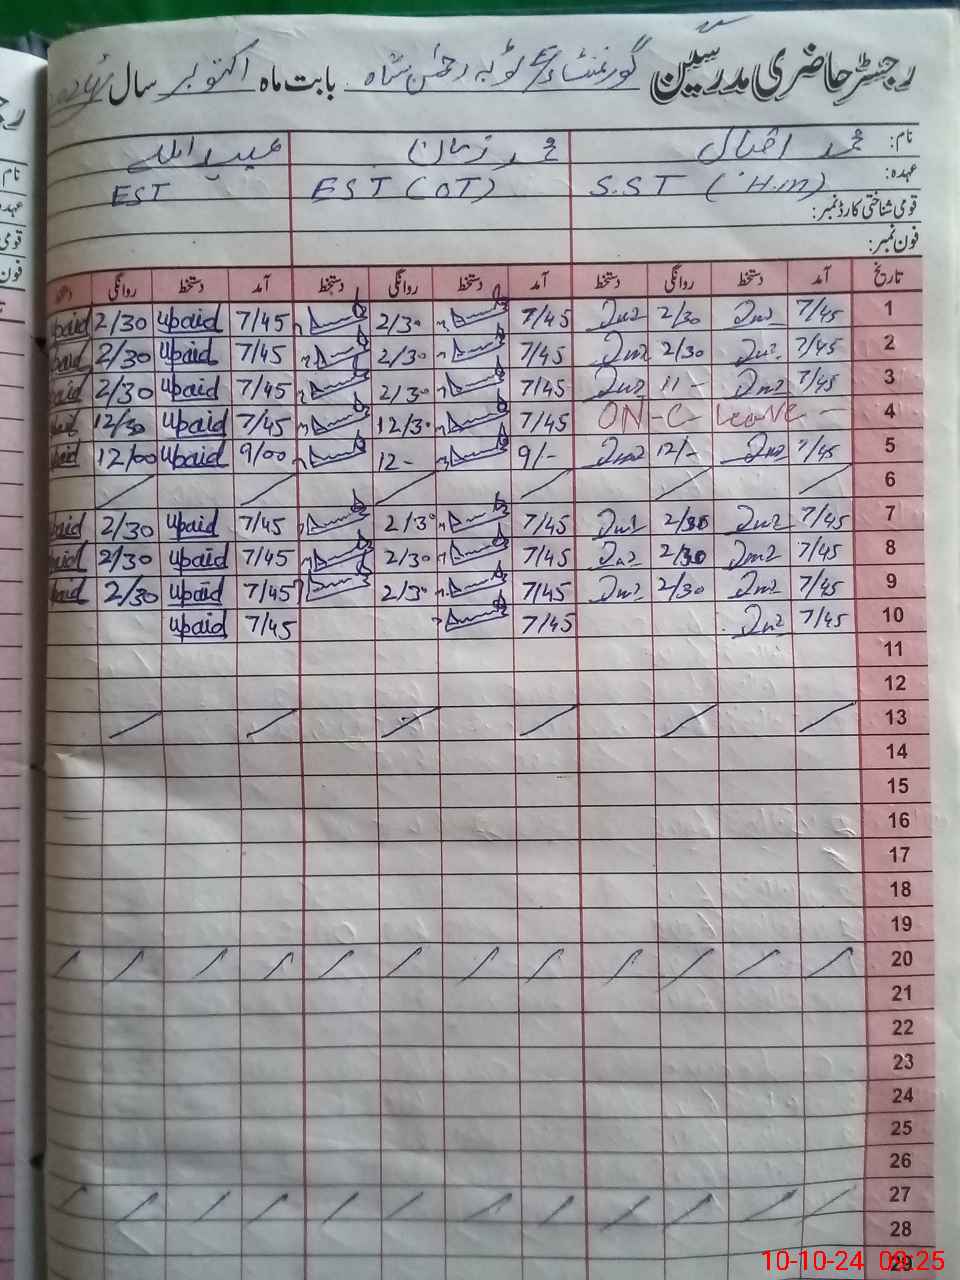 رجسٹر حاضری مدرسین گورنمنٹ ٹوبہ رحمٰن شاہ بابت ماہ اکتوبر سال 2024ء
نام: محمد اقبال محمد زمان عبید اللہ
عہدہ: S.ST (H.M) EST (OT) EST
قومی شناختی کارڈ نمبر:
فون نمبر:
تاریخ آمد دستخط روانگی دستخط آمد دستخط روانگی دستخط آمد دستخط روانگی
1 7/45 2/30 7/45 2/30 7/45 upaid 2/30 upaid
2 7/45 2/30 7/45 2/30 7/45 upaid 2/30
3 7/45 11 - 7/45 2/30 7/45 upaid 2/30
4 ON - C Leave - 7/45 12/30 7/45 upaid 12/30
5 7/45 12/- 9/- 12 - 9/00 upaid 12/00
6
7 7/45 2/30 7/45 2/30 7/45 upaid 2/30
8 7/45 2/30 7/45 2/30 7/45 upaid 2/30
9 7/45 2/30 7/45 2/30 7/45 upaid 2/30
10 7/45 7/45 7/45 upaid
11
12
13
14
15
16
17
18
19
20
21
22
23
24
25
26
27
28
29
10-10-24 09:25